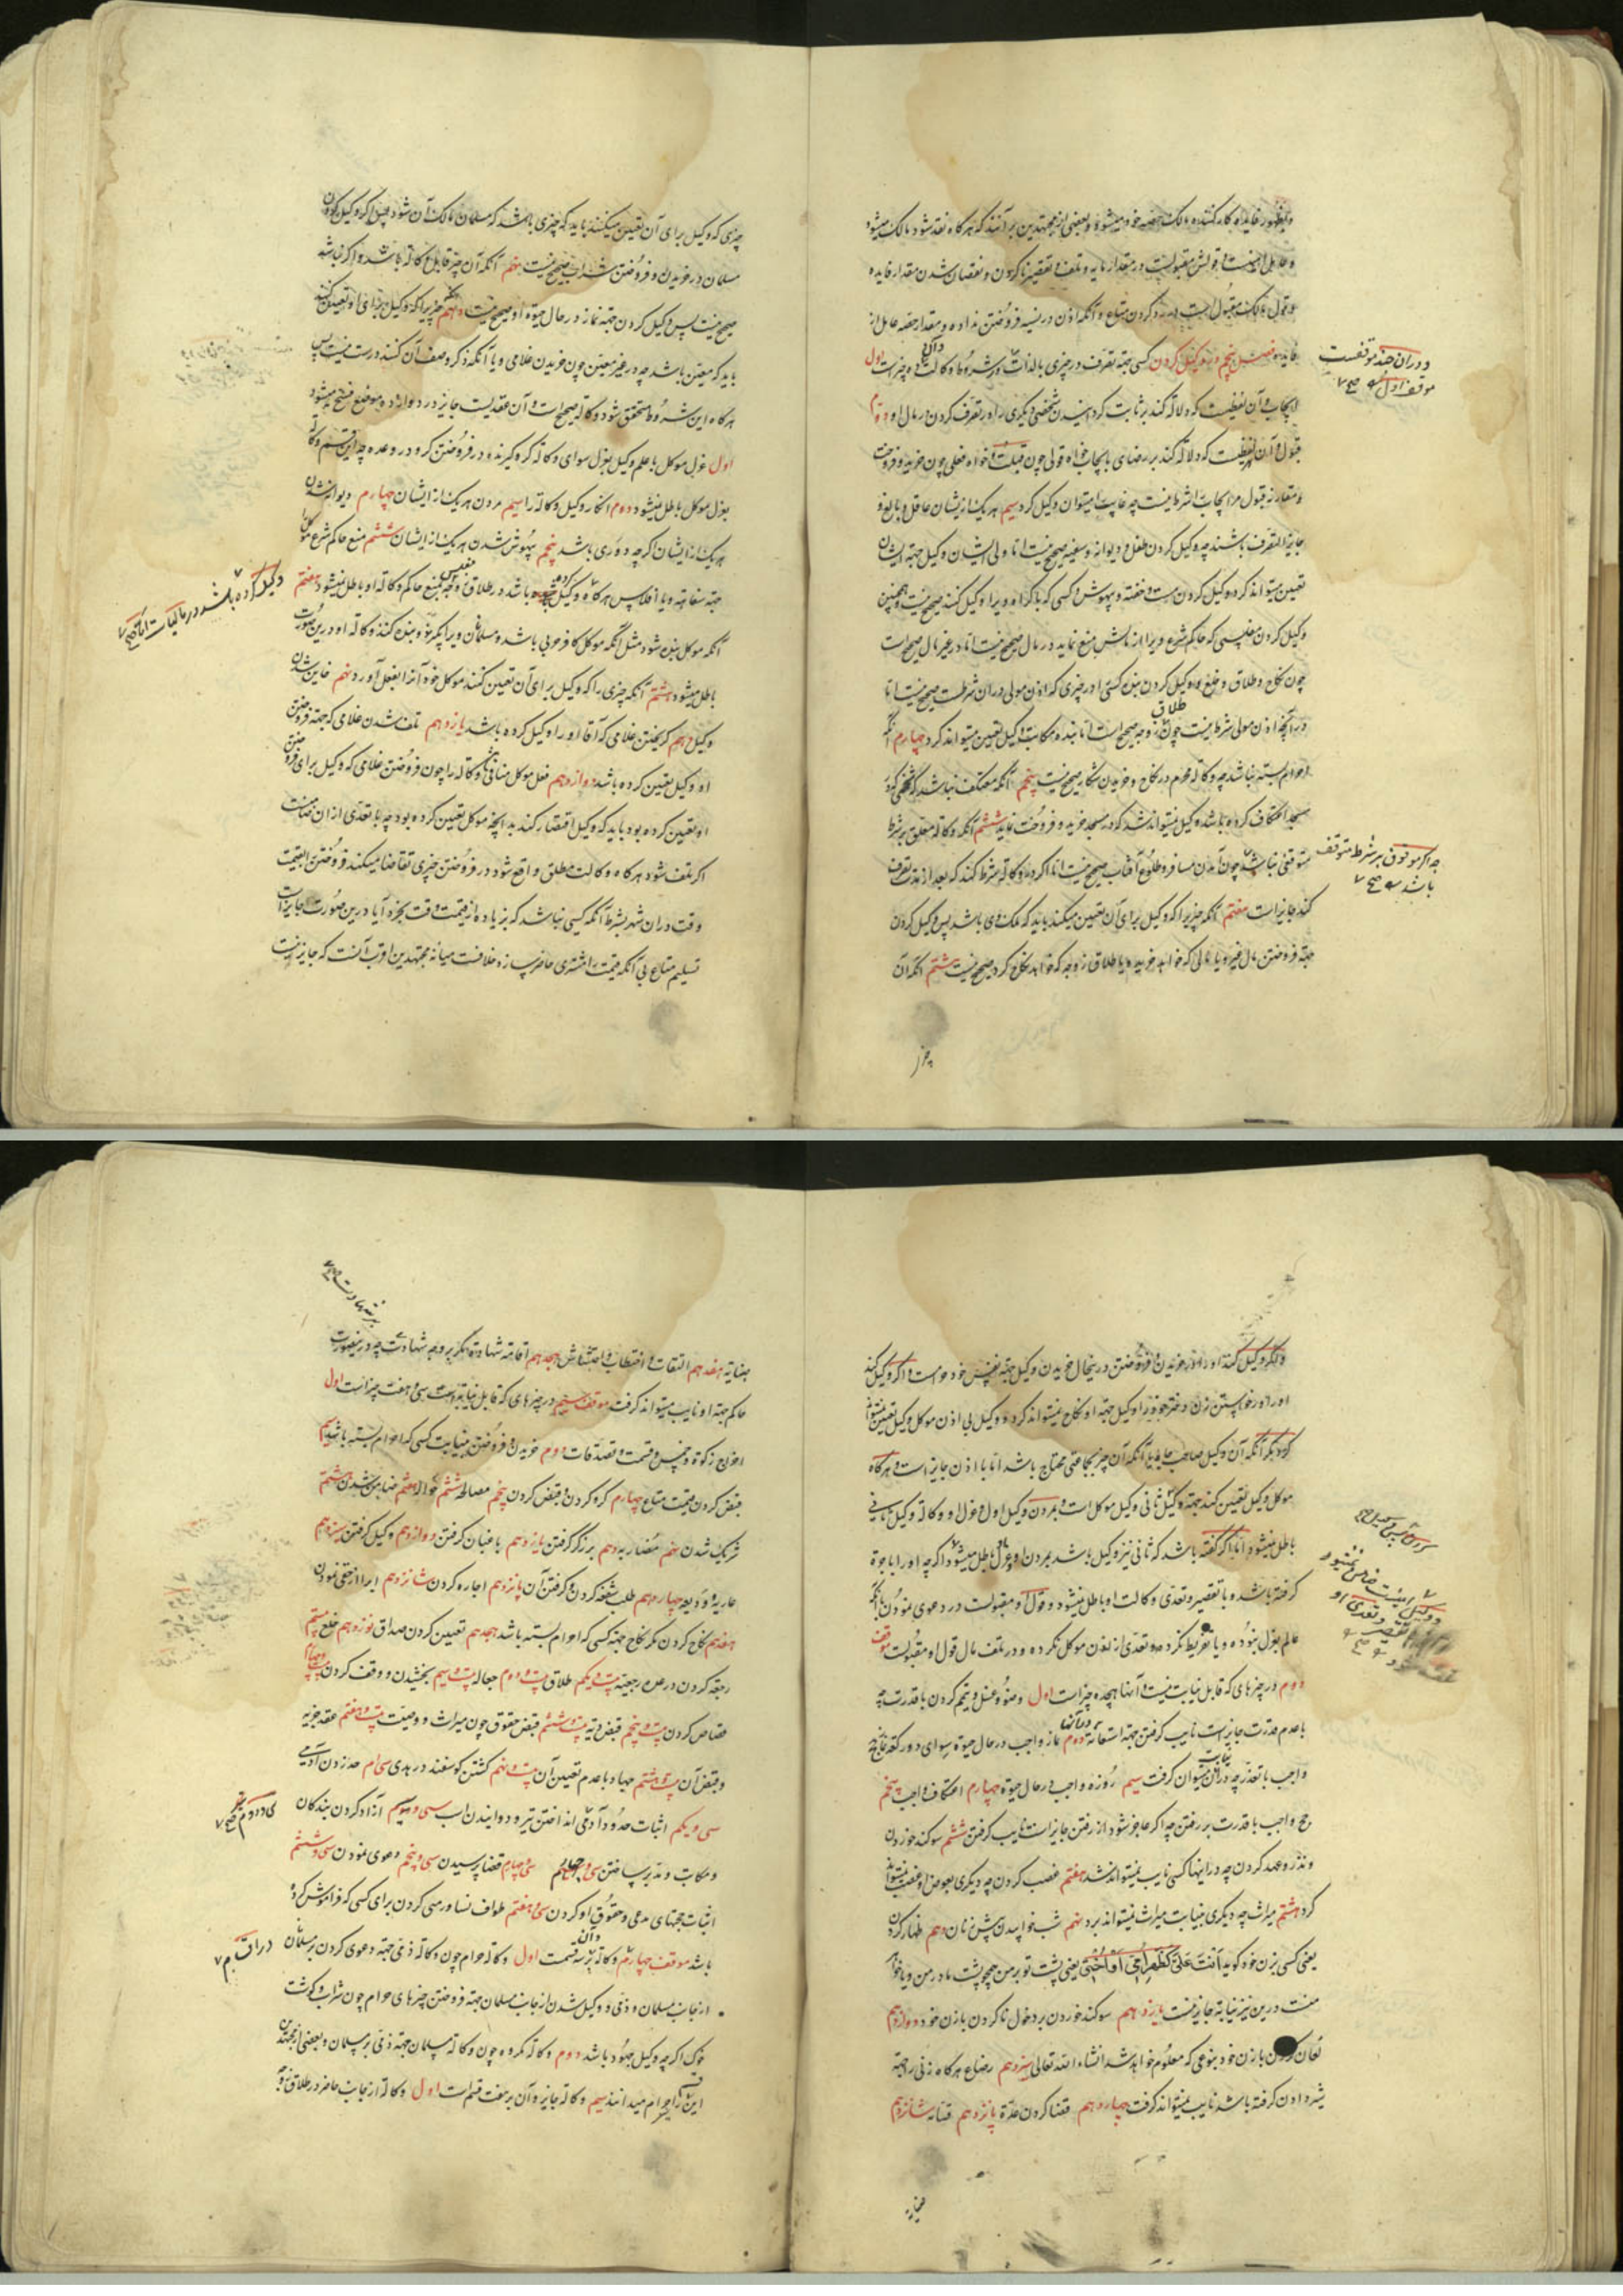 و بظهور فایده کارکننده مالک حصه خود میشود و بعضی از مجتهدین برآنند که هرگاه نقد شود مالک میشود
و عامل امینست و قولش مقبولست در مقدار مایه و تلف و تقصیر ناکردن و نقصان شدن مقدار فایده
و قول مالک مقبول است در رد کردن متاع و آنکه اذن در نسیه فروختن نداده و مقدار حصه عامل از
فایده فصل پنجم در وکیل کردن کسی جهة تصرف در چیزی بالذات و شروط وکالت ده چیز است اول
ایجاب و آن لفظیست که دلالة کند بر ثابت کردانیدن شخصی دیگری را در تصرف کردن در مال او دوم
قبول و آن لفظیست که دلالة کند بر رضای بایجاب خواه قولی چون قبلت و خواه فعلی چون خرید و فروخت
و مقارنه قبول مر ایجاب را شرط نیست چه غایب را میتوان وکیل کرد سیم هریک از ایشان عاقل و بالغ و
جایز التصرف باشند چه وکیل کردن طفل و دیوانه و سفیه صحیح نیست اما ولی ایشان وکیل جهة ایشان
تعیین میتواند کرد و وکیل کردن مست و خفته و بیهوش و کسی که باکراه او را وکیل کنند صحیح نیست و همچنین
وکیل کردن مفلسی که حاکم شرع ویرا از مالش منع نماید در مال صحیح نیست اما در غیر مال صحیح است
چون نکاح و طلاق و خلع و وکیل کردن بنده کسی را در چیزی که اذن مولی در ان شرطست صحیح نیست اما
در آنچه اذن مولی شرط نیست چون طلاق زوجه صحیح است اما بنده مکاتب وکیل تعیین میتواند کرد چهارم آنکه
احرام بسته نباشد چه وکالة محرم در نکاح و خریدن شکار صحیح نیست پنجم آنکه معتکف نباشد که شخصی که در
مسجد اعتکاف کرده باشد وکیل نمیتواند شد که در مسجد خرید و فروخت نماید ششم آنکه وکالة معلق بر شرط
متوقعی نباشد چون آمدن مسافر و طلوع آفتاب صحیح نیست اما اگر در وکالة شرط کند که بعد از مدت تصرف
کند جایز است هفتم آنکه چیزیرا که وکیل برای آن تعیین میکند باید که ملک وی باشد پس وکیل کردن
جهة فروختن مال غیر و یا مالی که خواهد خرید و یا طلاق زوجه که خواهد نکاح کرد صحیح نیست هشتم آنکه آن
چیز
و در ان چند موقفست
موقف اول صح
چه اگر موقوف بر شرط متوقف
باشد صح
چیزی که وکیل برای آن تعیین میکنند باید که چیزی باشد که مسلمان مالک آن شود پس اگر وکیل کردن
مسلمان در خریدن و فروختن شراب صحیح نیست نهم آنکه آن چیز قابل وکالة باشد و اگر نباشد
صحیح نیست پس وکیل کردن جهة نماز در حال حیوة او صحیح نیست دهم چیزیرا که وکیل برای او تعیین کنند
باید که معین باشد چه در غیر معین چون خریدن غلامی و یا آنکه ذکر وصف آن کنند درست نیست پس
هرگاه این شروط متحقق شود وکالة صحیح است و آن عقدیست جایز در دوازده موضع فسخ میشود
اول عزل موکل با علم وکیل بعزل سوای وکالة گرو گیرنده در فروختن گرو در وعده چه این قسم وکالة
بعزل موکل باطل نمیشود دوم انکار وکیل وکالة را سیم مردن هریک از ایشان چهارم دیوانه شدن
هریک از ایشان اگرچه دوری باشد پنجم بیهوش شدن هریک از ایشان ششم منع حاکم شرع موکل را
جهة سفاهة و یا افلاس هرگاه وکیل کرده باشد در طلاق زوجه بمنع حاکم وکالة او باطل نمیشود هفتم
آنکه موکل بنده شود مثل آنکه موکل کافر حربی باشد و مسلمانان ویرا بگیرند و بنده کنند وکالة او درین صورت
باطل میشود هشتم آنکه چیزی را که وکیل برای آن تعیین کنند موکل خود آنرا بفعل آورد نهم خاین شدن
وکیل دهم گریختن غلامی که آقا او را وکیل کرده باشد یازدهم تلف شدن غلامی که جهة فروختن
او وکیل تعیین کرده باشد دوازدهم فعل موکل منافی وکالة را چون فروختن غلامی که وکیل برای فروختن
او تعیین کرده بود و باید که وکیل اقتصار کند بدانچه موکل تعیین کرده بود چه با تعدی از ان ضامنست
اگر تلف شود هرگاه وکالت مطلق واقع شود در فروختن چیزی تقاضا میکند فروختن بقیمت
وقت در ان شهر بشرط آنکه کسی نباشد که بزیاده از قیمت وقت بخرد آیا درین صورت جایز است
تسلیم متاع بی آنکه قیمت را مشتری حاضر سازد خلافست میانه مجتهدین اقرب آنست که جایز نیست
وکیل کرده باشد در مالیات اما صح
و دیگر وکیل کند او را در خریدن و فروختن درینحال خریدن وکیل جهة نفس خود حرامست و اگر وکیل کند
او را در خواستن زن دختر خود را وکیل جهة او نکاح نمیتواند کرد و وکیل بی اذن موکل وکیل تعیین نمیتواند
کرد مگر آنکه آن وکیل صاحب جاه یا آنکه آن چیز بجماعتی محتاج باشد اما با اذن جایز است و هرگاه
موکل وکیل تعیین کند جهة وکیل ثانی وکیل موکل است و بمردن وکیل اول و عزل او وکالة وکیل ثانی
باطل نمیشود اما اگر گفته باشد که ثانی نیز وکیل باشد بمردن او و عزل باطل میشود اگرچه او را باجرة
گرفته باشد و با تقصیر و تعدی وکالت او باطل نمیشود و قول او مقبولست در دعوی نمودن آنکه
عالم بعزل نبوده و یا تفریط نکرده و تعدی از اذن موکل نکرده و در تلف مال قول او مقبولست موقف
دوم در چیزهای که قابل نیابت نیست و آنها هیجده چیز است اول وضو و غسل و تیمم کردن با قدرت چه
با عدم قدرت جایز است نایب گرفتن جهة استعانة در آنها دوم نماز واجب در حال حیوة سوای دو رکعة نماز حج
واجب با تعذر چه در آن نیابت میتوان گرفت سیم روزه واجب در حال حیوة چهارم اعتکاف واجب پنجم
حج واجب با قدرت بر رفتن چه اگر عاجز شود از رفتن جایز است نایب گرفتن ششم سوگند خوردن
و نذر و عهد کردن چه در اینها کسی نایب نمیتواند شد هفتم غصب کردن چه دیگری بعوض او غصب نمیتواند
کرد هشتم میراث چه دیگری بنیابت میراث نمیتواند برد نهم شب خوابیدن پیش زنان دهم ظهار کردن
یعنی کسی بزن خود گوید اَنْتِ عَلَیَّ کَظَهْرِ اُمّی اَوْ اُخْتی یعنی پشت تو بر من همچو پشت مادر من و یا خواهر
منست درین نیز نیابة جایز نیست یازدهم سوگند خوردن بر دخول ناکردن با زن خود دوازدهم
لعان کردن با زن خود بنوعی که معلوم خواهد شد انشاء الله تعالی سیزدهم رضاع هرگاه زنی را جهة
شیر دادن گرفته باشد نایب نمیتواند گرفت چهاردهم قضا کردن عدّة پانزدهم قسامه شانزدهم
جنایة
جنایة هفدهم التقاط و احتطاب و احتشاش هیجدهم اقامة شهادة مگر بر وجه شهادت چه درینصورت
حاکم جهة او نایب میتواند گرفت موقف سیم در چیزهای که قابل نیابة است سی و هفت چیز است اول
اخراج زکوة و خمس و قسمت و تصدقات دوم خریدن و فروختن بنیابت کسی که احرام بسته باشد سیم
قبض کردن قیمت متاع چهارم گرو کردن و قبض کردن پنجم مصالحه ششم حواله هفتم ضامن شدن هشتم
شریک شدن نهم مضاربه دهم برزگر گرفتن یازدهم باغبان گرفتن دوازدهم وکیل گرفتن سیزدهم
عاریه و ودیعه چهاردهم طلب شفعه کردن و گرفتن آن پانزدهم اجاره کردن شانزدهم ابرا از حقی نمودن
هفدهم نکاح کردن مگر نکاح جهة کسی که احرام بسته باشد هیجدهم تعیین کردن صداق نوزدهم خلع بیستم
رجعة کردن در عده رجعیه بیست و یکم طلاق بیست و دوم جعاله بیست و سیم بخشیدن و وقف کردن بیست و چهارم
قصاص کردن بیست و پنجم قبض دیه بیست و ششم قبض حقوق چون میراث و وصیت بیست و هفتم عقد جزیه
و قبض آن بیست و هشتم جهاد با عدم تعیین آن بیست و نهم کشتن گوسفند در هدی سی‌ام حد زدن آدمی
سی و یکم اثبات حدود آدمی انداختن تیر و دوانیدن اسب سی و سیم آزاد کردن بندگان
و مکاتب و مدبر ساختن سی و چهارم قضا پرسیدن سی و پنجم دعوی نمودن سی و ششم
اثبات حجتهای مدعی و حقوق او کردن سی و هفتم طواف نسا و رمی کردن برای کسی که فراموش کرده
باشد موقف چهارم وکالة و آن بر سه قسمت اول وکالة حرام چون وکالة ذمی جهة دعوی کردن بر مسلمان
از جانب مسلمان و ذمی و وکیل شدن از جانب مسلمان جهة فروختن چیزهای حرام چون شراب و گوشت
خوک اگرچه وکیل جهود باشد دوم وکالة مکروه چون وکالة مسلمان جهة ذمی بر مسلمان و بعضی از مجتهدین
این قسم را حرام میدانند سیم وکالة جایزه و آن بر هفت قسم است اول وکالة از جانب حاضر در طلاق زوجه
بر شهادت صح
در اقسام